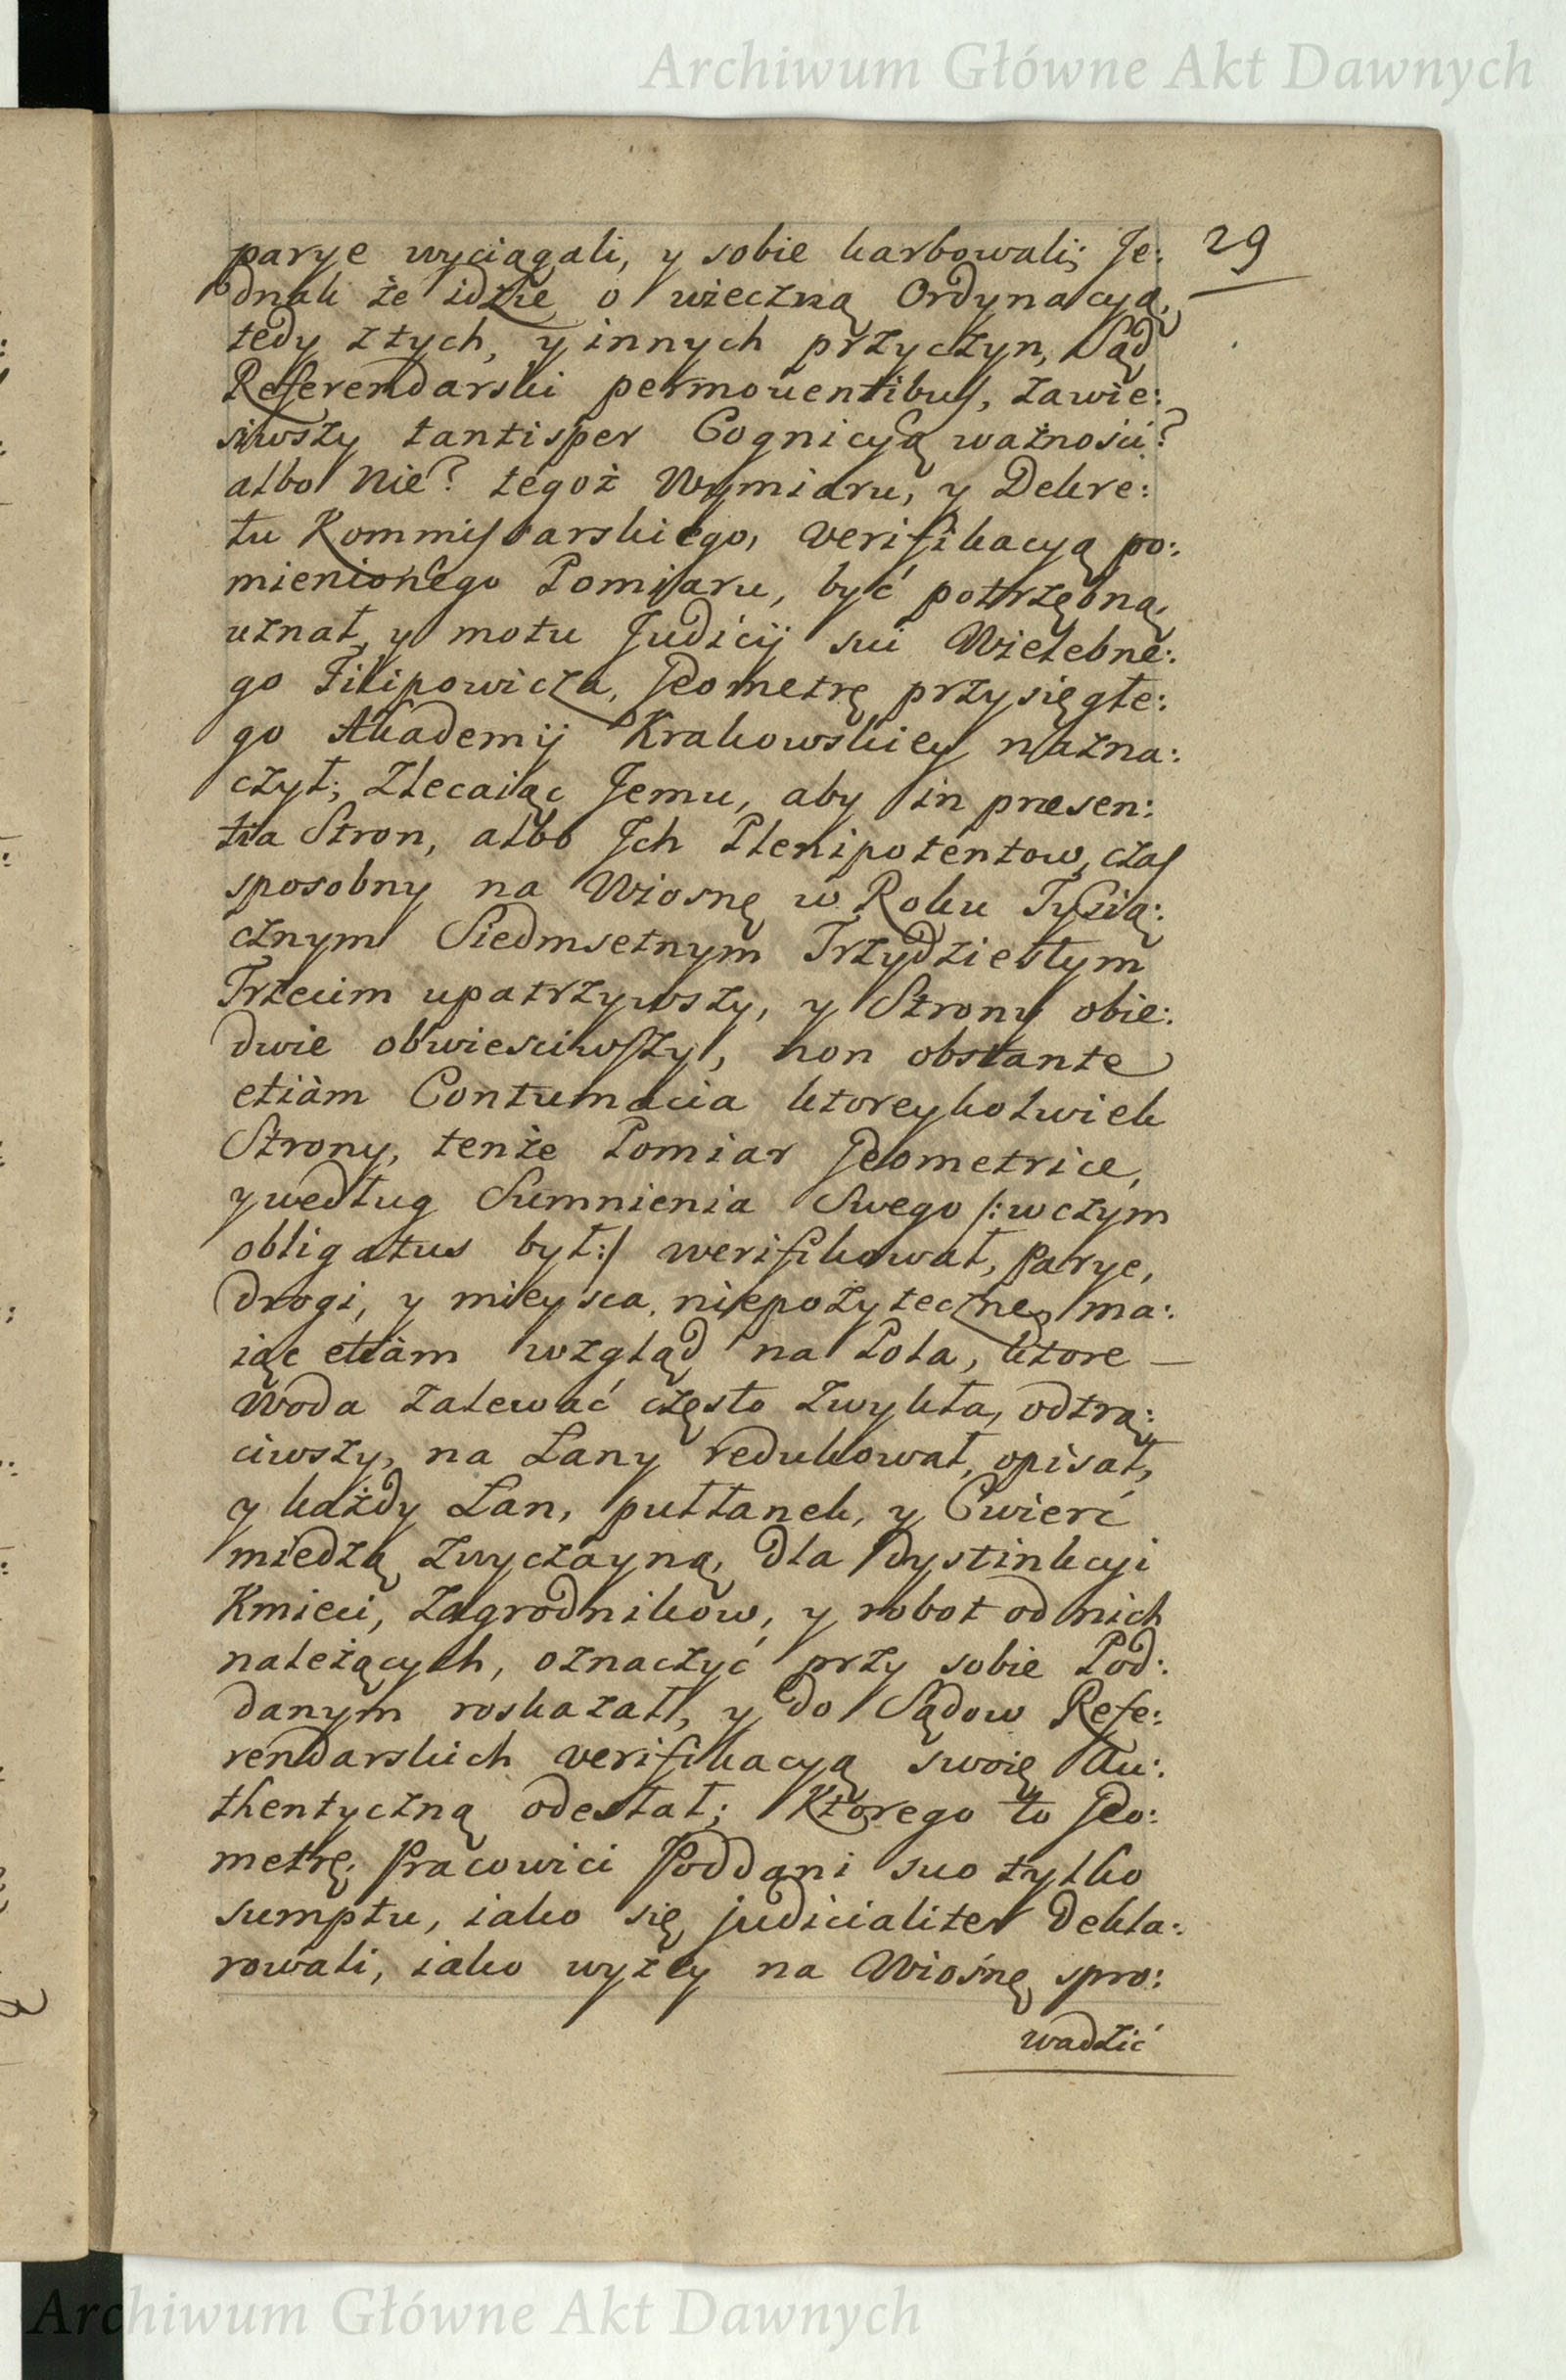 Archiwum Główne Akt Dawnych
29
parye wyciągali, y sobie karbowali; Je:
dnak że idzie o wieczną Ordynacyą,
tedy z tych, y innych przyczyn, Sąd
Referendarski permoventibus, zawie:
siwszy tantisper Cognicyą ważności?
albo Nie? tegoż Wymiaru, y Dekre:
tu Kommissarskiego, verifikacyą po:
mienionego Pomiaru, być potrzębną,
uznał, y motu Judicij sui Wielebne:
go Filipowicza, Geometrę przysięgłe:
go Akademij Krakowskiey nazna:
czył; Zlecaiąc Jemu, aby in præsen:
tia Stron, albo Jch Plenipotentow, czas
sposobny na Wiosnę w Roku Tysią:
cznym Siedmsetnym Trzydziestym
Trzecim upatrzywszy, y Strony obie:
dwie obwiesciwszy, non obstante
etiàm Contumacia ktoreykolwiek
Strony, tenże Pomiar Geometrice,
y według Sumnienia Swego /: w czym
obligatus był :/ werifikował, parye,
drogi, y mieysca niepożyteczne, ma:
iąc etiàm wzgląd na Pola, ktore —
Woda zalewać często zwykła, odtrą:
ciwszy, na Łany redukował, opisał,
y każdy Łan, pułłanek, y Cwierć
miedzą zwyczayną, dla dystinkcyi
Kmieci, Zagrodnikow, y robot od nich
należących, oznaczyć przy sobie Pod:
danym roskazał, y do Sądow Refe:
rendarskich verifikacyą swoię Au:
thentyczną odesłał; Ktorego to Geo:
metrę, Pracowici Poddani suo tylko
sumptu, iako się judicialiter Dekla:
rowali, iako wyżey na Wiośnę spro:
wadzić
Archiwum Główne Akt Dawnych